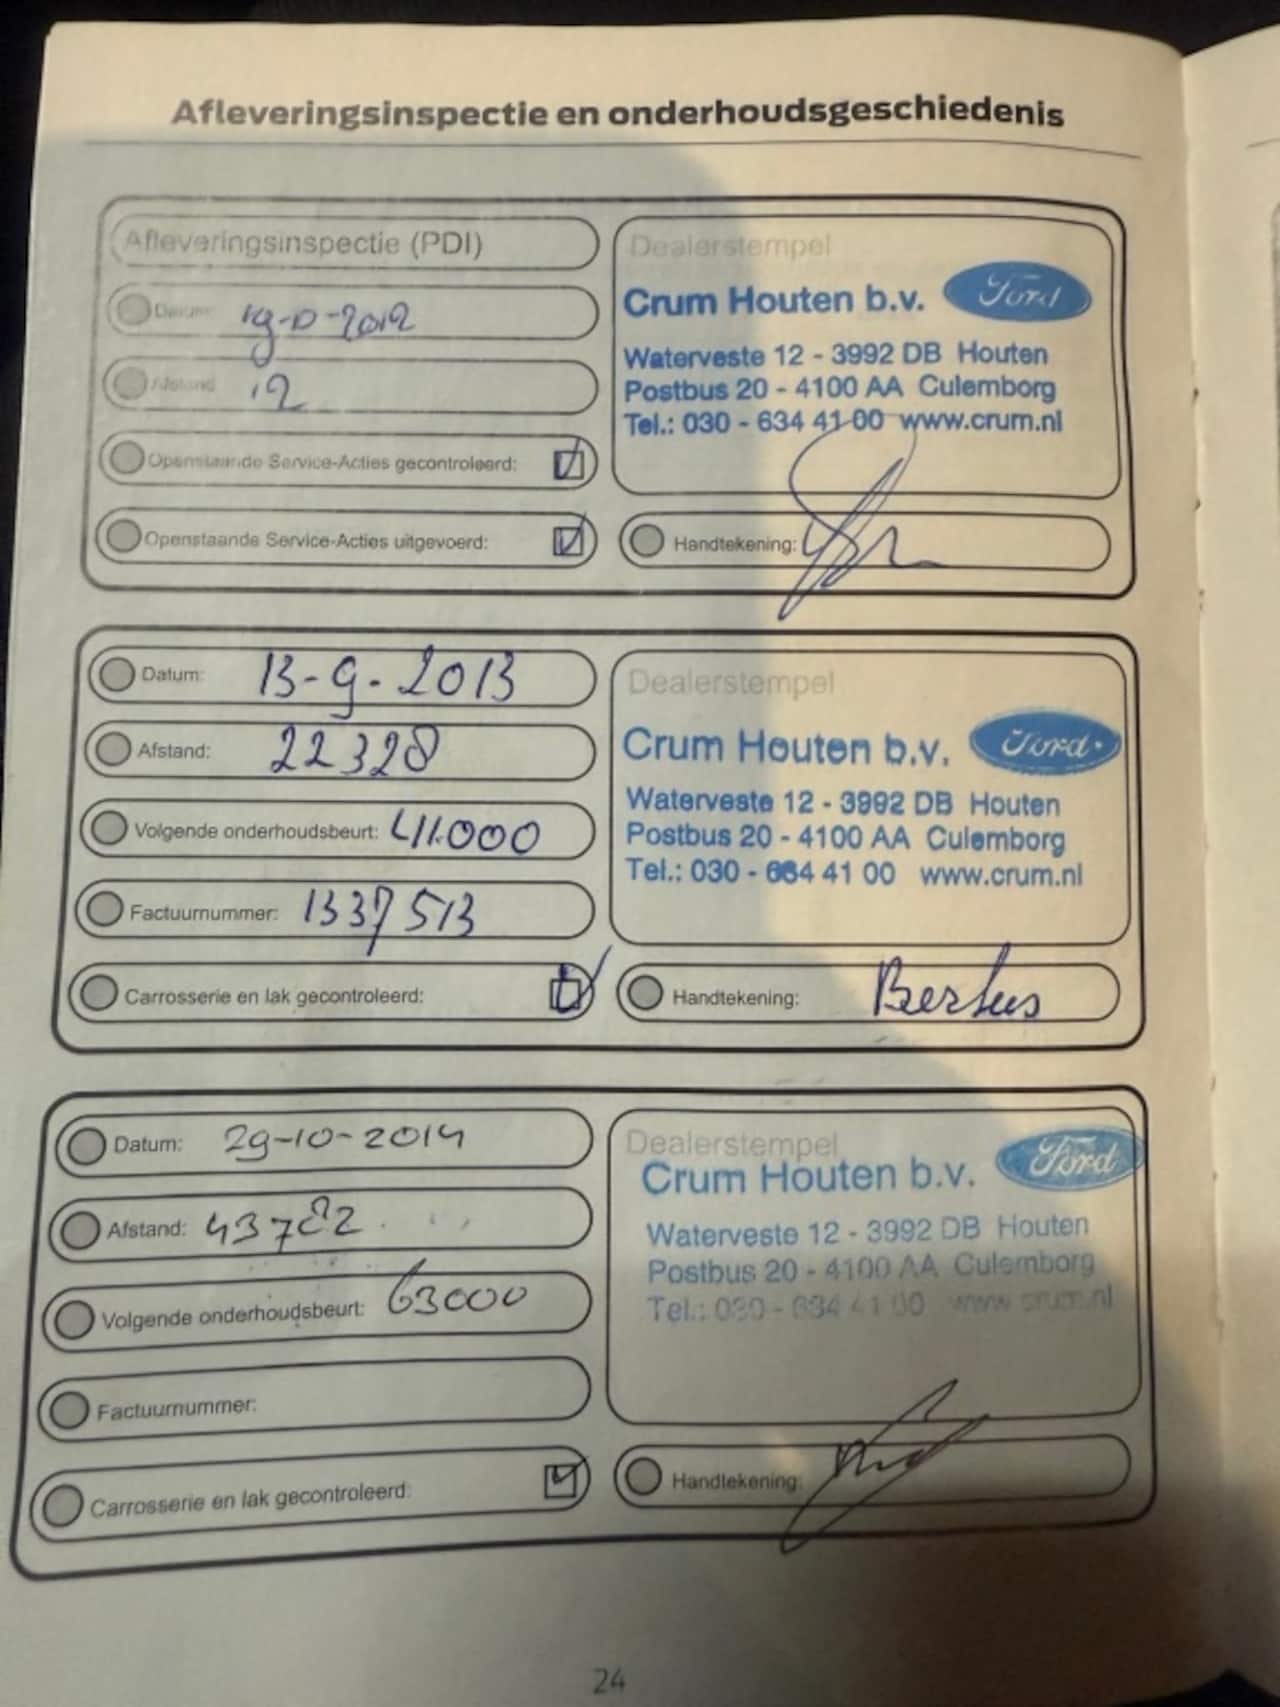 Afleveringsinspectie en onderhoudsgeschiedenis
Afleveringsinspectie (PDI)
Datum:
Afstand 12
Openstaande Service-Acties gecontroleerd:
Openstaande Service-Acties uitgevoerd:
Dealerstempel
Crum Houten b.v. Ford
Waterveste 12 - 3992 DB Houten
Postbus 20 - 4100 AA Culemborg
Tel.: 030 - 634 41 00 www.crum.nl
Handtekening:
Datum: 13-9-2013
Afstand: 22328
Volgende onderhoudsbeurt: 41.000
Factuurnummer: 1337513
Carrosserie en lak gecontroleerd:
Dealerstempel
Crum Houten b.v. Ford
Waterveste 12 - 3992 DB Houten
Postbus 20 - 4100 AA Culemborg
Tel.: 030 - 634 41 00 www.crum.nl
Handtekening: Bertus
Datum: 29-10-2014
Afstand:
Volgende onderhoudsbeurt: 63000
Factuurnummer:
Carrosserie en lak gecontroleerd:
Dealerstempel
Crum Houten b.v. Ford
Waterveste 12 - 3992 DB Houten
Postbus 20 - 4100 AA Culemborg
Tel.: 030 - 634 41 00 www.crum.nl
Handtekening:
24